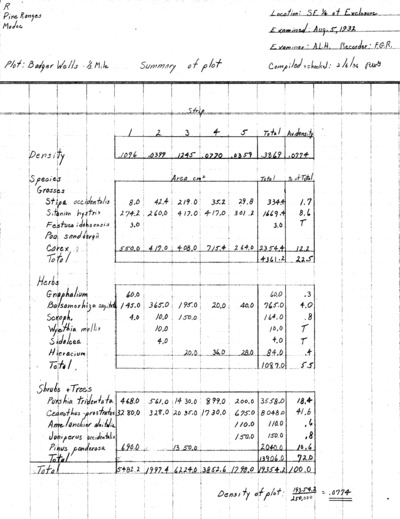 R
Pine Ranges
Modoc
Location: SE ¼ of Exclosure
Examined: Aug. 5, 1932
Examiner: A.L.H. Recorder: F.G.R.
Plot: Badger Wells ½ Mile Summary of plot Compiled & checked: 2/6/36
Strip
1 2 3 4 5 Total Av. density
Density .1096 .0399 .1245 .0770 .0359 .3869 .0774
Species Area cm² Total % of Total
Grasses
Stipa occidentalis 8.0 42.4 219.0 35.2 29.8 334.4 1.7
Sitanion hystrix 274.2 260.0 417.0 417.0 301.2 1669.4 8.6
Festuca idahoensis 3.0 3.0 T
Poa sandbergii
Carex 550.0 417.0 408.0 715.4 264.0 2354.4 12.2
Total 4361.2 22.5
Herbs
Gnaphalium 60.0 60.0 .3
Balsamorhiza sagittata 145.0 365.0 195.0 20.0 40.0 765.0 4.0
Scroph. 4.0 10.0 150.0 164.0 .8
Wyethia mollis 10.0 10.0 T
Sidalcea 4.0 4.0 T
Hieracium 20.0 36.0 28.0 84.0 .4
Total 1087.0 5.5
Shrubs + Trees
Purshia tridentata 468.0 561.0 1430.0 899.0 200.0 3558.0 18.4
Ceanothus prostratus 3280.0 328.0 2035.0 1730.0 675.0 8048.0 41.6
Amelanchier alnifolia 110.0 110.0 .6
Juniperus occidentalis 150.0 150.0 .8
Pinus ponderosa 690.0 1350.0 2040.0 10.6
Total 13906.0 72.0
Total 5482.2 1997.4 6224.0 3852.6 1798.0 19354.2 100.0
Density of plot: 19354.2 / 250,000 = .0774